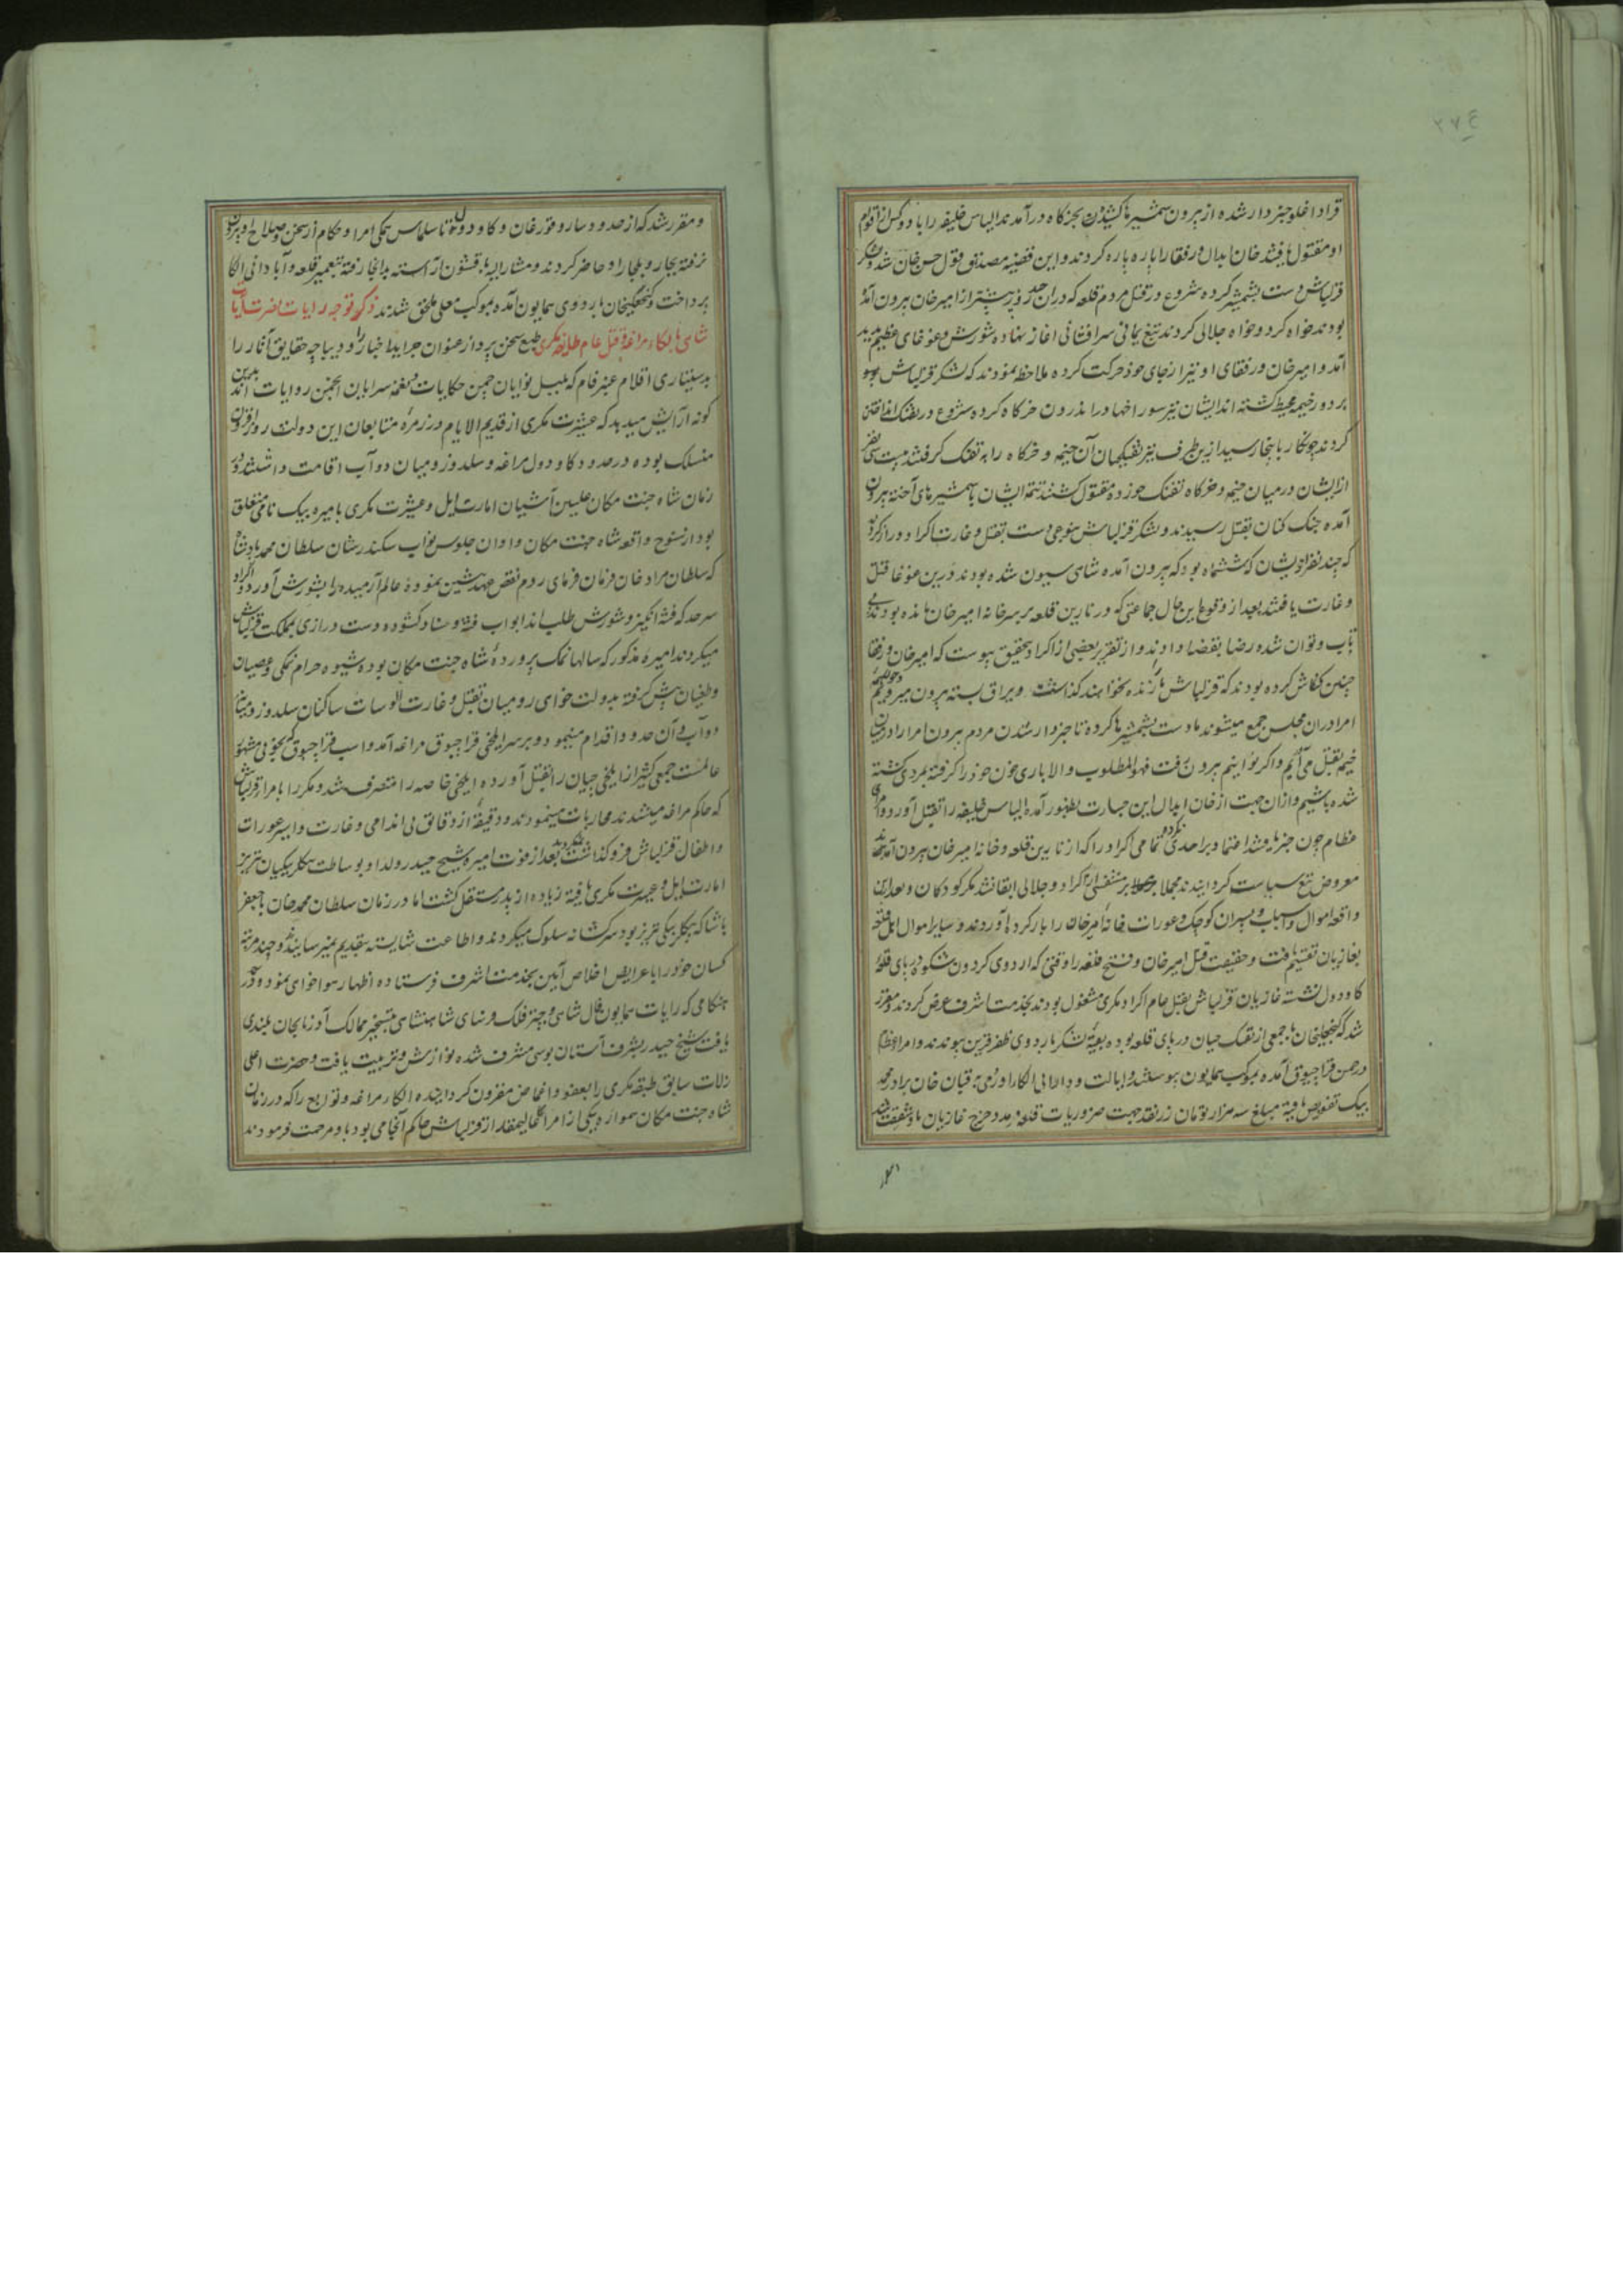 ۲۷۴
قرا داغلو خبر دار شده از بیرون شمشیرها کشیده بخرکاه درآمدند الیاس خلیفه را با دو کس از اقوام
او مقتول یافتند خان ابدال و رفقا را پاره پاره کردند و این قضیه مصدق قول حسن خان شد و لشکر
قزلباش دست بشمشیر کرده شروع در قتل مردم قلعه که در آن چند روز پیشتر از امیرخان بیرون آمده
بودند خواه کرد و خواه جلالی کردند تیغ یمانی سرافشانی اغاز نهاده شورش و غوغای عظیم پدید
آمد و امیرخان و رفقای او نیز از جای خود حرکت کرده ملاحظه نمودند که لشکر قزلباش
بر دور خیمه محیط گشته اند ایشان نیز سوراخها در اندرون خرکاه کرده شروع در تفنک انداختن
کردند چون کار باینجا رسید ازین طرف نیز تفنکچیان آن خیمه و خرکاه را به تفنک گرفتند بیست سی نفر
از ایشان در میان خیمه و خرکاه تفنک خورده مقتول گشتند تتمه ایشان با شمشیرهای آخته بیرون
آمده جنک کنان بقتل رسیدند و لشکر قزلباش دست بقتل و غارت اکراد دراز کردند
که چند نفر از ایشان که ششماه بود که بیرون آمده شاهی سیون شده بودند درین غوغا قتل
و غارت یافتند بعد از وقوع این حال جماعتی که در نارین قلعه بر سر خانه امیرخان مانده بودند بی
تاب و توان شده رضا بقضا دادند و از تقریر بعضی از اکراد بتحقیق پیوست که امیرخان و رفقا
چنین کنکاش کرده بودند که قزلباش ما را زنده نخواهند گذاشت و یراق بسته بیرون میرویم
امرا در آن مجلس جمع میشوند ما دست بشمشیرها کرده تا خبردار شدن مردم بیرون امرا را در میان
خیمه بقتل می آریم و اگر توانیم بیرون رفت فهو المطلوب و الا باری خون خود را گرفته بمردی کشته
شده باشیم و از آن جهت از خان ابدال این جسارت بظهور آمده الیاس خلیفه را بقتل آورد و امرای
عظام چون خبر یافتند اعتماد بر احدی نکرده تمامی اکراد را که از نارین قلعه و خانه امیرخان بیرون آمدند
معروض تیغ سیاست گردانیدند مجملا بر متنفسی از اکراد و جلالی ابقا نشد مگر کودکان و بعد این
واقعه اموال و اسباب و پسران کوچک و عورات خانه امیرخان را بار کرده آوردند و سایر اموال اهل قلعه
بغازیان تقسیم یافت و حقیقت قتل امیرخان و فتح قلعه را وقتی که اردوی گردون شکوه در پای قلعه
کاودول نشسته غازیان قزلباش بقتل عام اکراد مکری مشغول بودند بخدمت اشرف عرض کردند و مقرر
شد که گنجعلیخان با جمعی از تفنکچیان در پای قلعه بوده بقیه لشکر باردوی ظفر قرین پیوندند و امرا عظام
در چمن قراچبوق آمده بموکب همایون پیوستند و ایالت و دارائی الکا ارومی به قبان خان برادر محمد
بیک تفویض یافته مبلغ سه هزار تومان زر نقد جهت ضروریات قلعه و مدد خرج غازیان با و شفقت شد
و مقرر شد که از حدود سارو قورغان و کاودول تا سلماس همگی امرا و حکام از سخن و صلاح او بیرون
نرفته بجار و بلجار او حاضر گردند و مشارالیه با قشون آراسته بدانجا رفته بتعمیر قلعه و آبادانی الکا
پرداخت و گنجعلیخان باردوی همایون آمده بموکب معلی ملحق شدند ذکر توجه رایات نصرت آیات
شاهی بالکاء مراغه و قتل عام طایفه مکری طبع سخن پرداز عنوان جراید اخبار را و دیباچه حقایق آثار را
بدستیاری اقلام عنبر فام که بلبل نوایان چمن حکایات و نغمه سرایان انجمن روایات اند بدین
گونه آرایش میدهد که عشیرت مکری از قدیم الایام در زمره متابعان این دولت روزافزون
منسلک بوده در حدود کاودول مراغه و سلدوز و میان دوآب اقامت داشتند و در
زمان شاه جنت مکان علیین آشیان امارت ایل و عشیرت مکری بامیره بیک نامی متعلق
بود از سنوح واقعه شاه جنت مکان و اوان جلوس نواب سکندر شان سلطان محمد پادشاه
که سلطان مراد خان فرمان فرمای روم نقض عهد پیشین نموده عالم آرمیده را بشورش آورد و اکراد
سرحد که فتنه انگیز و شورش طلب اند ابواب فتنه و فساد گشوده دست درازی بمملکت قزلباش
میکردند امیره مذکور که سالها نمک پرورده شاه جنت مکان بوده شیوه حرام نمکی و عصیان
و طغیان پیش گرفته بدولت خواهی رومیان بقتل و غارت الوسات ساکنان سلدوز و میانه
دوآب و آن حدود اقدام مینمود و بر سر ایلخی قراچبوق مراغه آمد و اسب قراچبوق که بخوبی مشهور
عالمست جمعی کثیر از ایلخی چیان را بقتل آورده ایلخی خاصه را متصرف شد و مکررا با امراء قزلباش
که حاکم مراغه میشدند محاربات مینمودند و دقیقه از دقایق بی اندامی و غارت و اسر عورات
و اطفال قزلباش فرو گذاشت نمیکردند بعد از فوت امیره شیخ حیدر ولد او بوساطت بیکلربیکیان تبریز
امارت ایل و عشیرت مکری یافته زیاده از پدر مستقل گشت اما در زمان سلطان محمد خان با جعفر
پاشا که بیکلربیکی تبریز بود سرکشانه سلوک میکردند و اطاعت شایسته بتقدیم نمیرسانیدند و چند مرتبه
کسان خود را با عرایض اخلاص آیین بخدمت اشرف فرستاده اظهار هواخواهی نمود و در
هنگامی که رایات همایون فال شاهی و چتر فلک فرسای شاهنشاهی بتسخیر ممالک آذربایجان بلندی
یافت شیخ حیدر بشرف آستان بوسی مشرف شده نوازش و تربیت یافت و حضرت اعلی
زلات سابق طبقه مکری را بعفو و اغماض مقرون گردانیده الکاء مراغه و توابع را که در زمان
شاه جنت مکان همواره یکی از امراء عالیمقدار قزلباش حاکم آنجا می بود باو مرحمت فرمودند